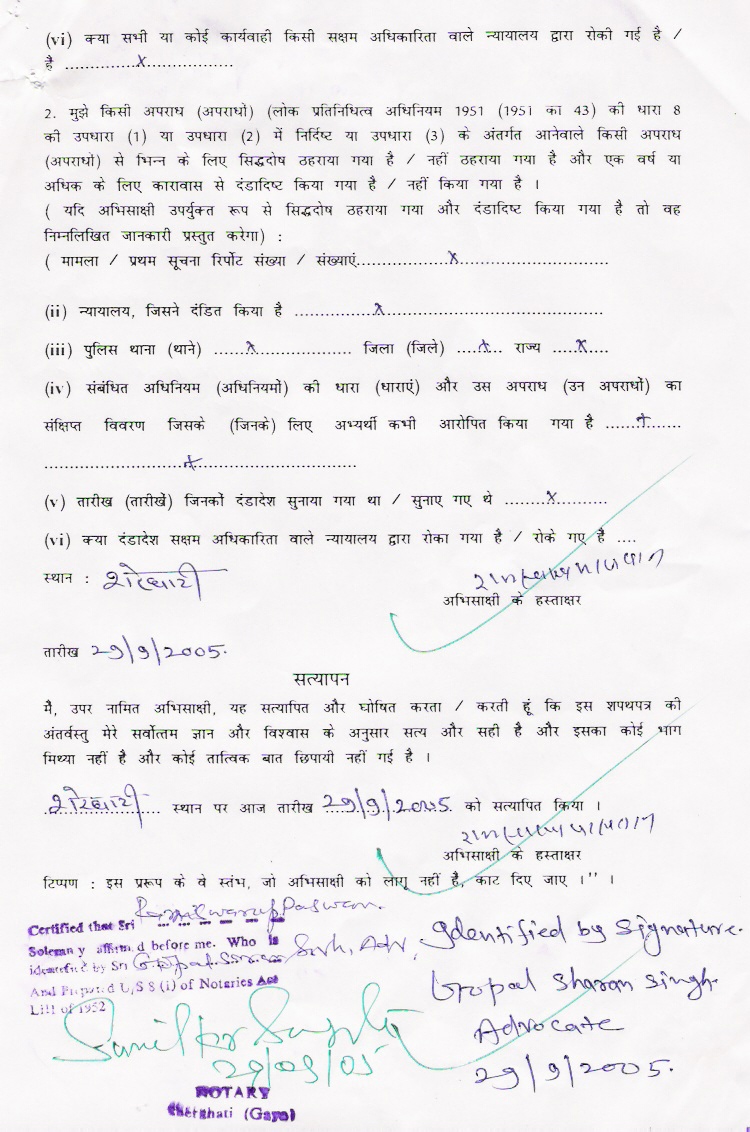 (vi) क्या सभी या कोई कार्यवाही किसी सक्षम अधिकारिता वाले न्यायालय द्वारा रोकी गई है /
है ..................x....................
2. मुझे किसी अपराध (अपराधों) (लोक प्रतिनिधित्व अधिनियम 1951 (1951 का 43) की धारा 8
की उपधारा (1) या उपधारा (2) में निर्दिष्ट या उपधारा (3) के अंतर्गत आनेवाले किसी अपराध
(अपराधों) से भिन्न के लिए सिद्धदोष ठहराया गया है / नहीं ठहराया गया है और एक वर्ष या
अधिक के लिए कारावास से दंडादिष्ट किया गया है / नहीं किया गया है ।
( यदि अभिसाक्षी उपर्युक्त रूप से सिद्धदोष ठहराया गया और दंडादिष्ट किया गया है तो वह
निम्नलिखित जानकारी प्रस्तुत करेगा) :
( मामला / प्रथम सूचना रिर्पोट संख्या / संख्याएं....................x................................
(ii) न्यायालय, जिसने दंडित किया है .................x..............................................
(iii) पुलिस थाना (थाने) .......x................... जिला (जिले) .....x.. राज्य .....x.....
(iv) संबंधित अधिनियम (अधिनियमों) की धारा (धाराएं) और उस अपराध (उन अपराधों) का
संक्षिप्त विवरण जिसके (जिनके) लिए अभ्यर्थी कभी आरोपित किया गया है .......x.......
.............................x.................................
(v) तारीख (तारीखें) जिनकों दंडादेश सुनाया गया था / सुनाए गए थे .........x..........
(vi) क्या दंडादेश सक्षम अधिकारिता वाले न्यायालय द्वारा रोका गया है / रोके गए है ....
स्थान : शेरघाटी
अभिसाक्षी के हस्ताक्षर
तारीख 29/9/2005.
सत्यापन
मै, उपर नामित अभिसाक्षी, यह सत्यापित और घोषित करता / करती हूं कि इस शपथपत्र की
अंतर्वस्तु मेरे सर्वोत्तम ज्ञान और विश्वास के अनुसार सत्य और सही है और इसका कोई भाग
मिथ्या नहीं है और कोई तात्विक बात छिपायी नहीं गई है ।
शेरघाटी स्थान पर आज तारीख 29/9/2005. को सत्यापित किया ।
अभिसाक्षी के हस्ताक्षर
टिप्पण : इस प्ररूप के वे स्तंभ, जो अभिसाक्षी को लागू नहीं है, काट दिए जाए ।" ।
Certified that Sri Ramswarup Paswan.
Solemny affirmd before me. Who is
identified by Sri Gopal Saran Sinh, Adv,
And Prepared U,S 8 (i) of Notaries Act
LIII of 1952
Identified by Signature.
Gopal Sharan Singh.
Advocate
29/9/2005.
Sunil Kr Gupta
29/09/05
NOTARY
Sherghati (Gaya)